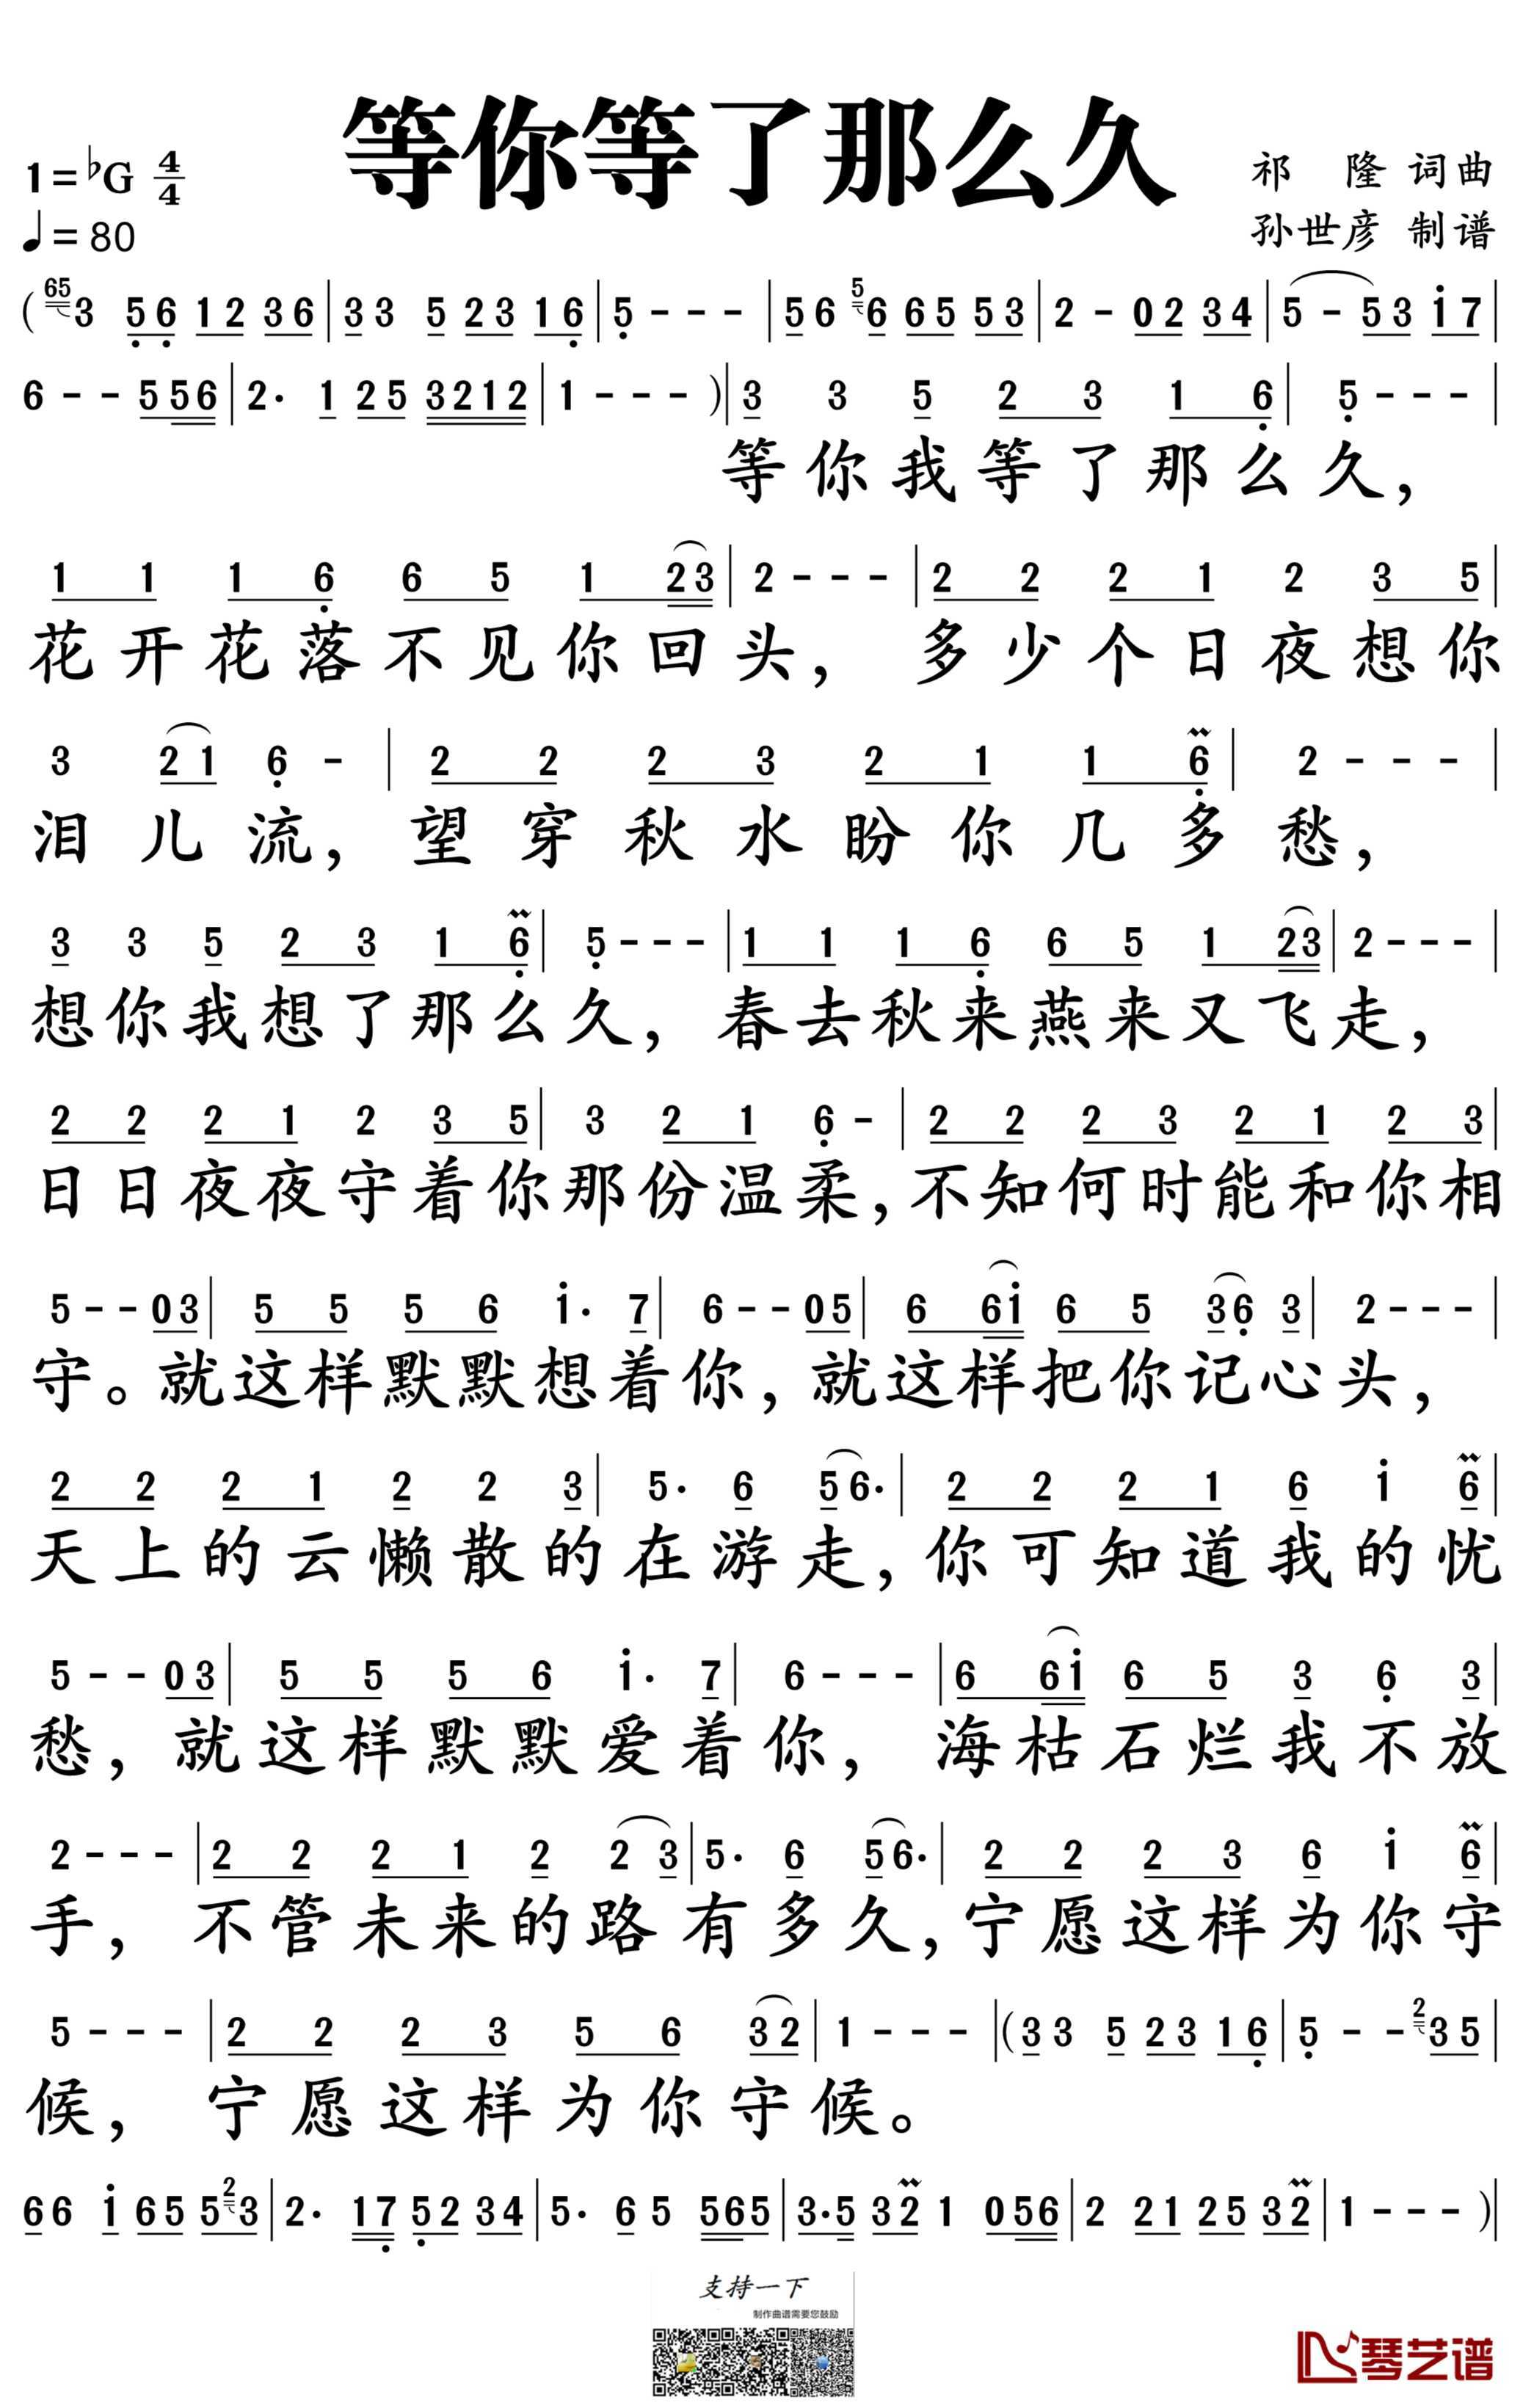 等你等了那么久
1=♭G 4/4
祁 隆 词曲
♩=80
孙世彦 制谱
( 65 3 5̣6̣ 12 36 | 33 5 23 16̣ | 5̣ - - - | 56 5 6 65 53 | 2 - 02 34 | 5 - 53 i7 |
6 - - 556 | 2· 1 25 3212 | 1 - - - ) | 3 3 5 2 3 1 6̣ | 5̣ - - - |
等你我等了那么久，
1 1 1 6̣ 6 5 1 23 | 2 - - - | 2 2 2 1 2 3 5 |
花开花落不见你回头，多少个日夜想你
3 21 6̣ - | 2 2 2 3 2 1 1 6̣ | 2 - - - |
泪儿流，望穿秋水盼你几多愁，
3 3 5 2 3 1 6̣ | 5̣ - - - | 1 1 1 6̣ 6 5 1 23 | 2 - - - |
想你我想了那么久，春去秋来燕来又飞走，
2 2 2 1 2 3 5 | 3 2 1 6̣ - | 2 2 2 3 2 1 2 3 |
日日夜夜守着你那份温柔，不知何时能和你相
5 - - 03 | 5 5 5 6 i· 7 | 6 - - 05 | 6 6i 6 5 36̣ 3 | 2 - - - |
守。就这样默默想着你，就这样把你记心头，
2 2 2 1 2 2 3 | 5· 6 56· | 2 2 2 1 6 i 6 |
天上的云懒散的在游走，你可知道我的忧
5 - - 03 | 5 5 5 6 i· 7 | 6 - - - | 6 6i 6 5 3 6̣ 3 |
愁，就这样默默爱着你，海枯石烂我不放
2 - - - | 2 2 2 1 2 2 3 | 5· 6 56· | 2 2 2 3 6 i 6 |
手，不管未来的路有多久，宁愿这样为你守
5 - - - | 2 2 2 3 5 6 32 | 1 - - - | (33 5 23 16̣ | 5̣ - - 2 35 |
候，宁愿这样为你守候。
66 i 65 5 2 3 | 2· 17̣ 5̣2 34 | 5· 6 5 565 | 3·5 32 1 056 | 2 21 25 32 | 1 - - - ) |
支持一下
制作曲谱需要您鼓励
琴艺谱